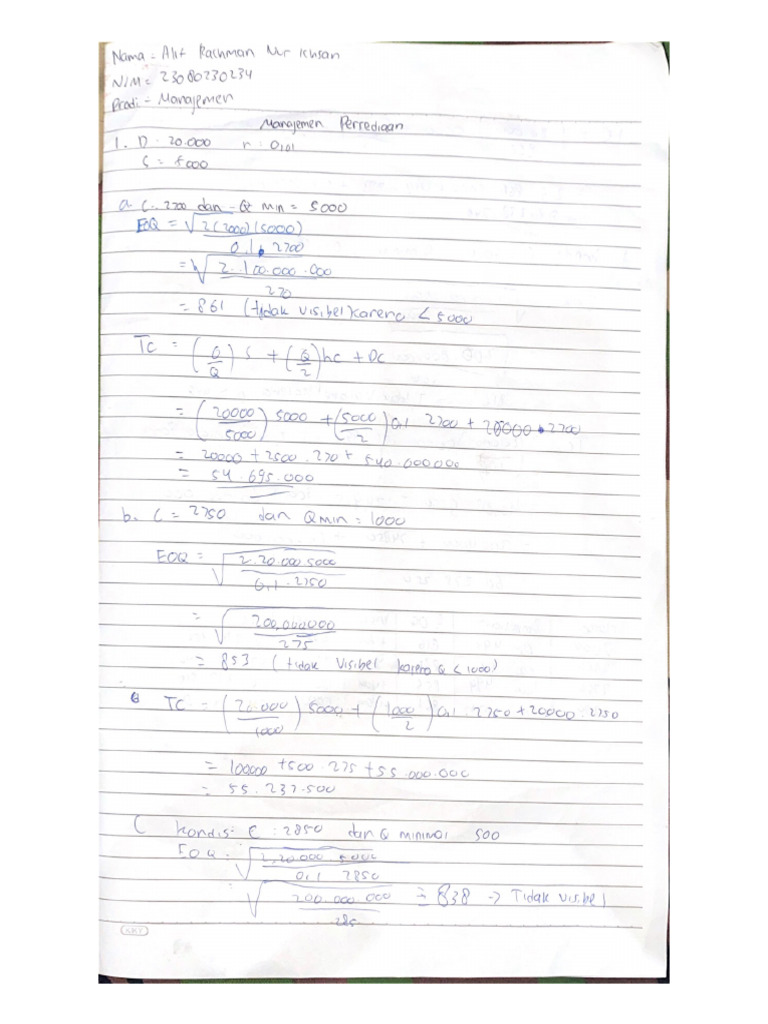 Nama = Alif Rachman Nur Ichsan
NIM = 23080230234
Prodi = Manajemen
Manajemen Persediaan
1. D = 20.000 r = 0,01
S = 5000
a C. 2700 dan Q min = 5000
EOQ = √ 2(2000)(5000)
0.1 . 2700
= √ 2.100.000.000
270
= 861 (tidak visibel) karena < 5000
TC = (D/Q) S + (Q/2) hc + Dc
= (20000/5000) 5000 + (5000/2) 0,1 2700 + 20000 . 2700
= 20000 + 2500 . 270 + 540.00000
= 54.695.000
b. C = 2750 dan Qmin = 1000
EOQ = √ 2.20.000 5000
0,1 . 2750
= √ 200,000000
275
= 853 (tidak Visibel karena Q < 1000)
TC = (20.000/1000) 5000 + (1000/2) 0,1 . 2750 + 20000 . 2750
= 100000 + 500 . 275 + 55.000.000
= 55.237.500
C Kondisi C : 2850 dan Q minimal 500
EOQ = √ 2,20.000 5000
0,1 2850
√ 200.000.000 = 838 -> Tidak visibel
285